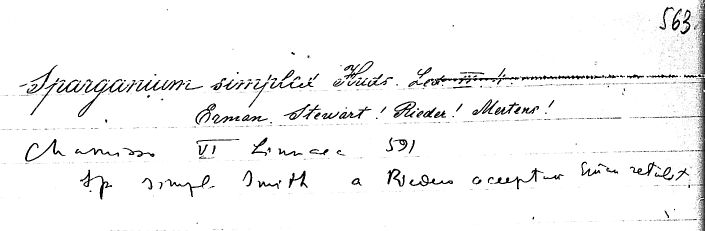 563
Sparganium simplex Huds. Led. III. 4
Erman. Stewart! Rieder! Mertens!
Chamisso VI Linnaea 591
Sp simpl. Smith a Riedero acceptum retulit